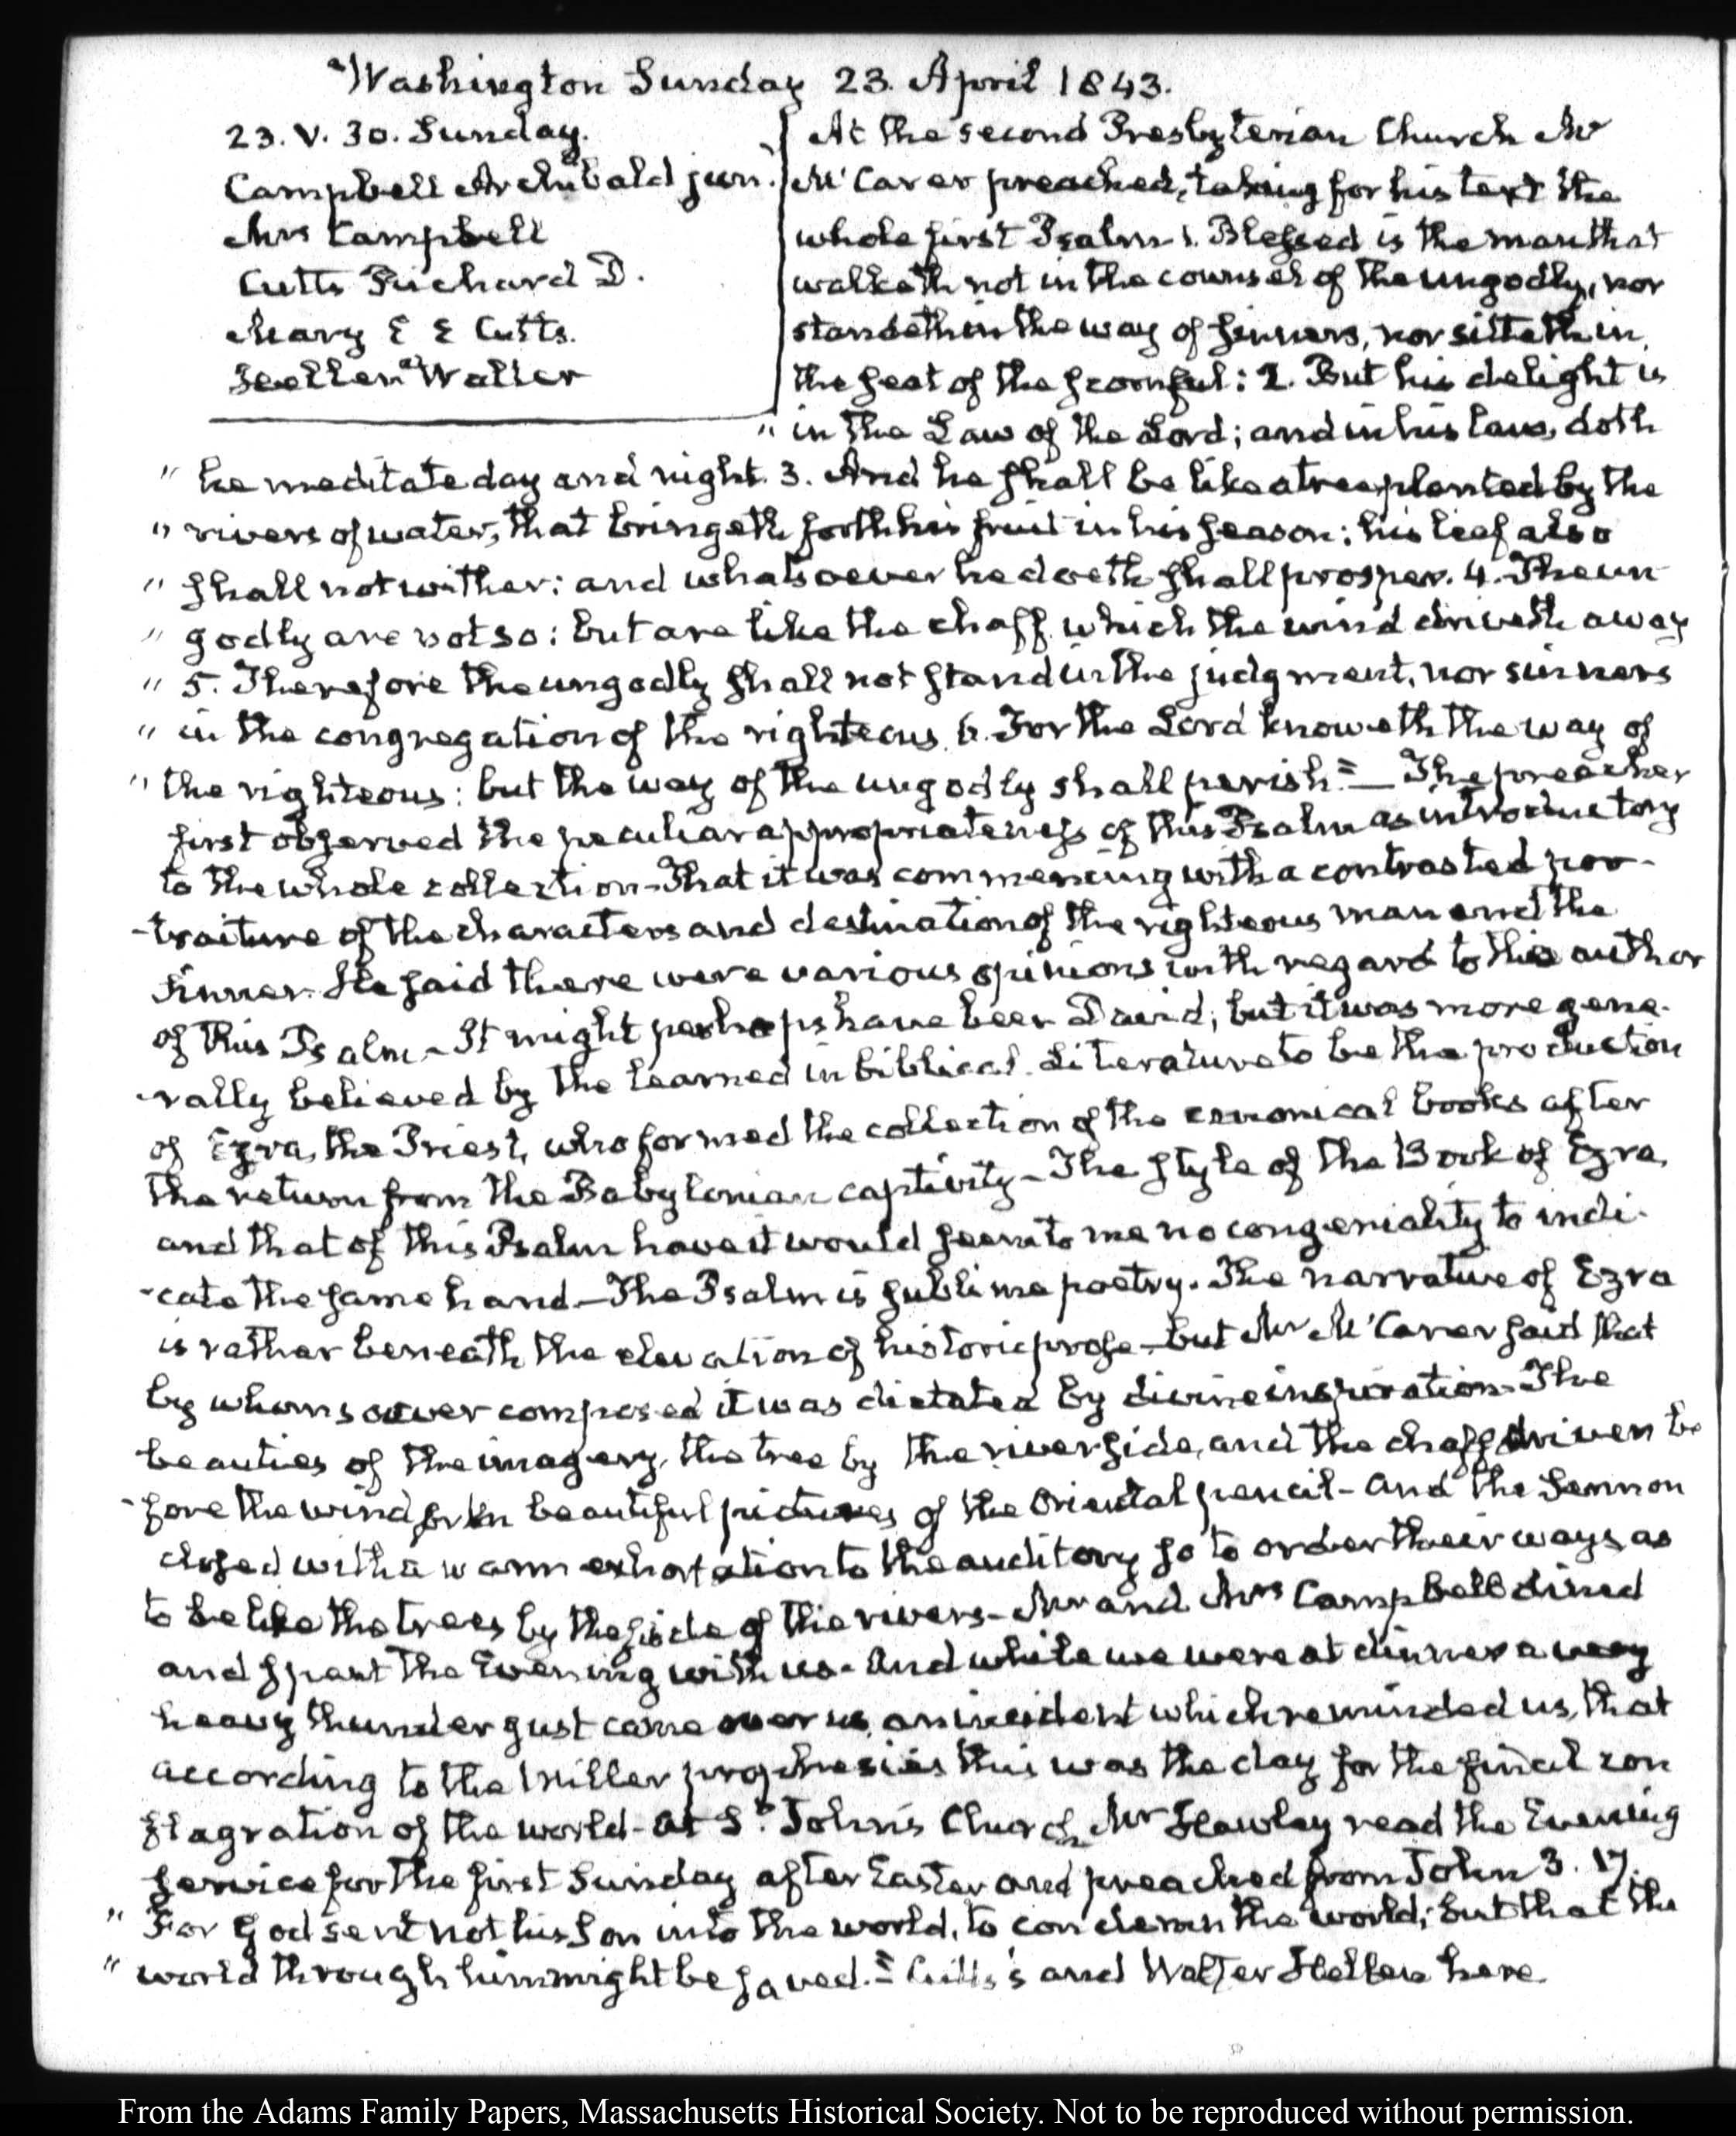 Washington Sunday 23. April 1843.
23. V. 30. Sunday.
Campbell Archibald jun.
Mrs Campbell
Cutts Richard D.
Mary E E Cutts.
Hellen Walter
At the second Presbyterian Church Mr
M'Carer preached, taking for his text the
whole first Psalm 1. Blessed is the man that
walketh not in the counsel of the ungodly, nor
standeth in the way of sinners, nor sitteth in
the seat of the scornful: 2. But his delight is
" in the Law of the Lord; and in his law, doth
" he meditate day and night. 3. And he shall be like a tree planted by the
" rivers of water, that bringeth forth his fruit in his season; his leaf also
" shall not wither: and whatsoever he doeth shall prosper. 4. The un
" godly are not so: but are like the chaff which the wind driveth away
" 5. Therefore the ungodly shall not stand in the judgment, nor sinners
" in the congregation of the righteous. 6. For the Lord knoweth the way of
" the righteous: but the way of the ungodly shall perish." — The preacher
first observed the peculiar appropriateness of this Psalm as introductory
to the whole collection—That it was commencing with a contrasted por-
-traiture of the characters and destination of the righteous man and the
sinner. He said there were various opinions with regard to the author
of this Psalm—It might perhaps have been David; but it was more gene-
-rally believed by the learned in biblical Literature to be the production
of Ezra, the Priest, who formed the collection of the canonical books after
the return from the Babylonian captivity—The style of the Book of Ezra,
and that of this Psalm have it would seem to me no congeniality to indi-
-cate the same hand—The Psalm is sublime poetry. The narrative of Ezra
is rather beneath the elevation of historic prose—but Mr M'Carer said that
by whomsoever composed it was dictated by divine inspiration—The
beauties of the imagery, the tree by the river side, and the chaff driven be
-fore the wind are beautiful pictures of the Oriental pencil—and the Sermon
closed with a warm exhortation to the auditory so to order their ways, as
to be like the trees by the side of the rivers—Mr and Mrs Campbell dined
and spent the Evening with us—And while we were at dinner a very
heavy thunder gust came over us, an incident which reminded us, that
according to the Miller prophesies this was the day for the final con
flagration of the world—At St. John's Church Mr Hawley read the Evening
service for the first Sunday after Easter and preached from John 3. 17.
" For God sent not his Son into the world, to condemn the world; but that the
" world through him might be saved." Cutts's and Walter Hellen here.
From the Adams Family Papers, Massachusetts Historical Society. Not to be reproduced without permission.